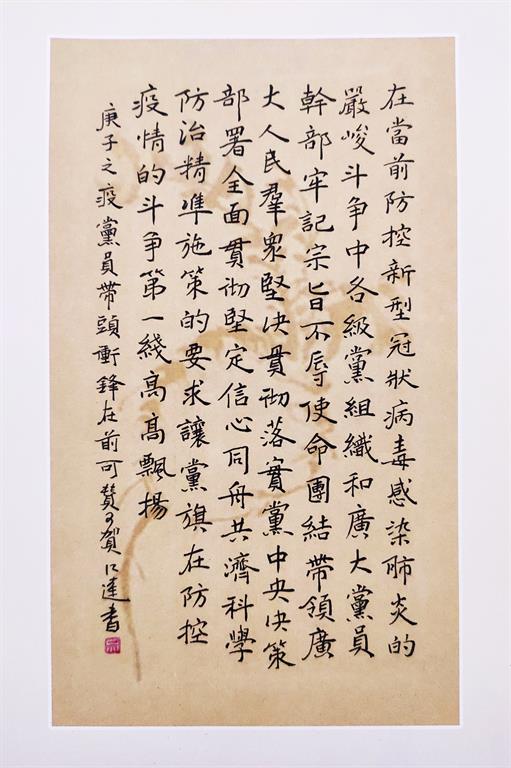 在當前防控新型冠狀病毒感染肺炎的
嚴峻斗争中各級黨組織和廣大黨員
幹部牢記宗旨不辱使命團結帶領廣
大人民羣衆堅决貫彻落實黨中央决策
部署全面貫彻堅定信心同舟共濟科學
防治精準施策的要求讓黨旗在防控
疫情的斗争第一綫高高飄揚
庚子之疫黨員帶頭衝鋒在前可贊可賀達書